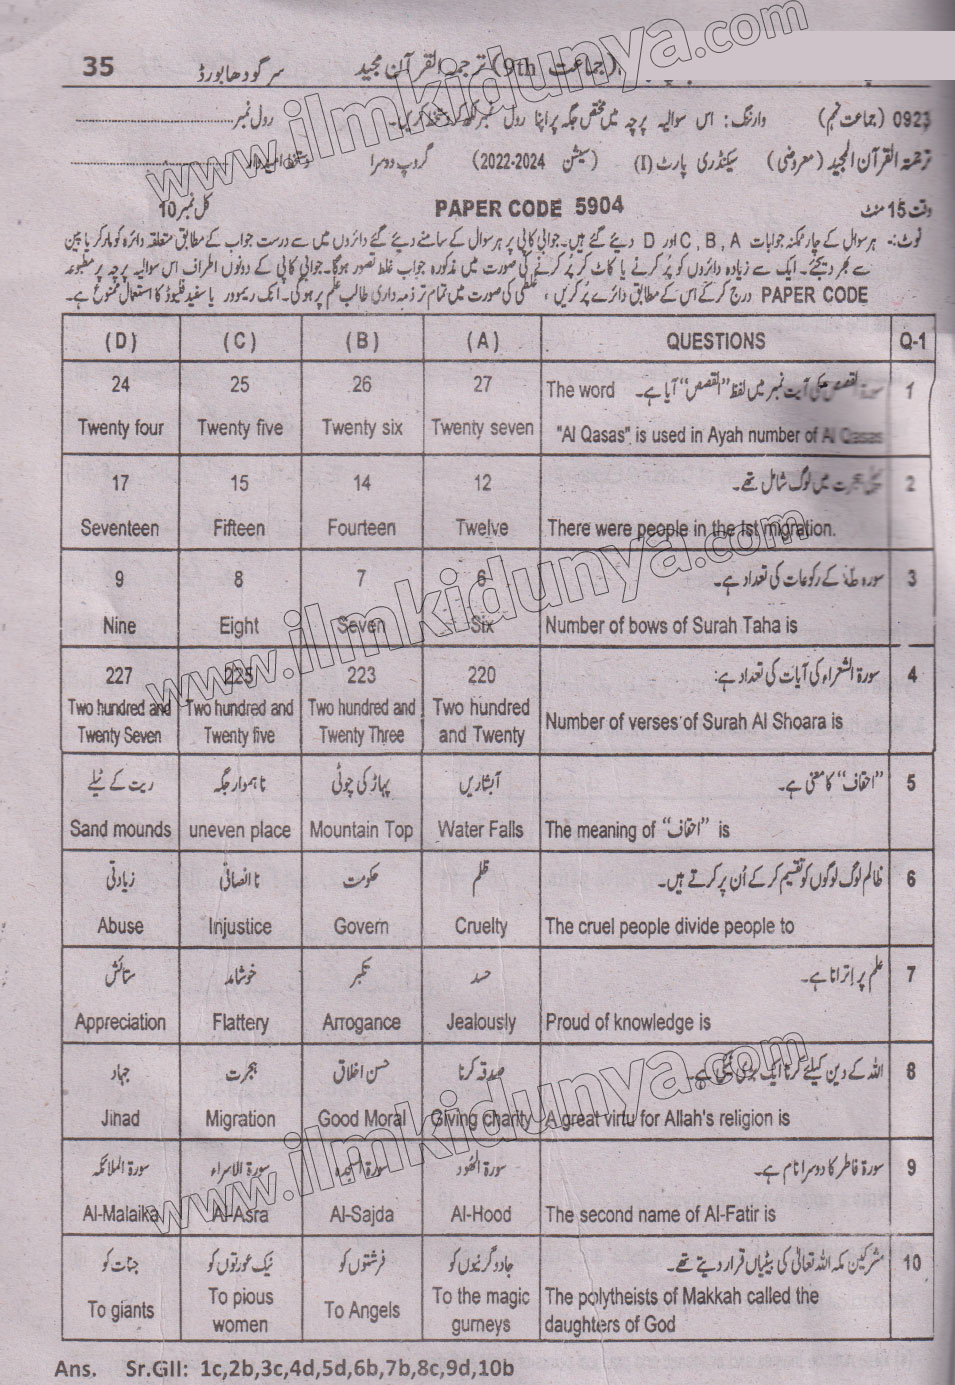 35 سرگودھا بورڈ (جماعت 9th) ترجمۃ القرآن مجید
0923 (جماعت نہم) وارننگ: اس سوالیہ پرچہ میں مختص جگہ پر اپنا رول نمبر لکھ کر دستخط کریں۔ رول نمبر
ترجمۃ القرآن المجید (معروضی) سیکنڈری پارٹ (I) (سیشن 2022-2024) گروپ دوسرا دستخط امیدوار
وقت 15 منٹ PAPER CODE 5904 کل نمبر 10
نوٹ:- ہر سوال کے چار ممکنہ جوابات A , B , C اور D دیئے گئے ہیں۔ جوابی کاپی پر ہر سوال کے سامنے دیئے گئے دائروں میں سے درست جواب کے مطابق متعلقہ دائرہ کو مارکر یا پین
سے بھر دیجئے۔ ایک سے زیادہ دائروں کو پُر کرنے یا کاٹ کر پُر کرنے کی صورت میں مذکورہ جواب غلط تصور ہوگا۔ جوابی کاپی کے دونوں اطراف اس سوالیہ پرچہ پر مطبوعہ
PAPER CODE درج کر کے اس کے مطابق دائرے پُر کریں، غلطی کی صورت میں تمام تر ذمہ داری طالب علم پر ہوگی۔ انک ریموور یا سفید فلیوڈ کا استعمال ممنوع ہے۔
(D) (C) (B) (A) QUESTIONS Q-1
24 25 26 27 The word سورۃ القصص کی آیت نمبر میں لفظ "القصص" آیا ہے۔ 1
Twenty four Twenty five Twenty six Twenty seven "Al Qasas" is used in Ayah number of Al Qasas
17 15 14 12 ہجرت میں لوگ شامل تھے۔ 2
Seventeen Fifteen Fourteen Twelve There were people in the Ist migration.
9 8 7 6 سورہ طٰہٰ کے رکوعات کی تعداد ہے۔ 3
Nine Eight Seven Six Number of bows of Surah Taha is
227 225 223 220 سورۃ الشعراء کی آیات کی تعداد ہے: 4
Two hundred and Twenty Seven Two hundred and Twenty five Two hundred and Twenty Three Two hundred and Twenty Number of verses of Surah Al Shoara is
ریت کے ٹیلے ناہموار جگہ پہاڑ کی چوٹی آبشاریں "احقاف" کا معنی ہے۔ 5
Sand mounds uneven place Mountain Top Water Falls The meaning of "احقاف" is
زیادتی نا انصافی حکومت ظلم ظالم لوگ لوگوں کو تقسیم کر کے اُن پر کرتے ہیں۔ 6
Abuse Injustice Govern Cruelty The cruel people divide people to
ستائش خوشامد تکبر حسد علم پر اِترانا ہے۔ 7
Appreciation Flattery Arrogance Jealously Proud of knowledge is
جہاد ہجرت حسن اخلاق صدقہ کرنا اللہ کے دین کیلئے کرنا ایک بڑی نیکی ہے۔ 8
Jihad Migration Good Moral Giving charity A great virtu for Allah's religion is
سورۃ الملائکہ سورۃ الاسراء سورۃ السجدہ سورۃ الھُود سورۃ فاطر کا دوسرا نام ہے۔ 9
Al-Malaika Al-Asra Al-Sajda Al-Hood The second name of Al-Fatir is
جنات کو نیک عورتوں کو فرشتوں کو جادوگرنیوں کو مشرکین مکہ اللہ تعالیٰ کی بیٹیاں قرار دیتے تھے۔ 10
To giants To pious women To Angels To the magic gurneys The polytheists of Makkah called the daughters of God
Ans. Sr.GII: 1c,2b,3c,4d,5d,6b,7b,8c,9d,10b
www.ilmkidunya.com
www.ilmkidunya.com
www.ilmkidunya.com